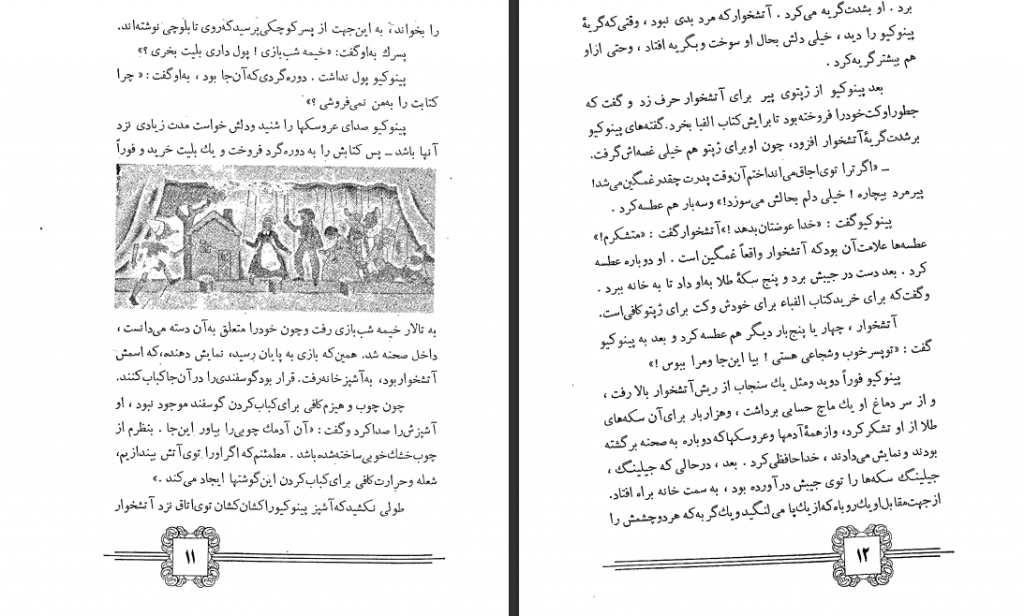 را بخواند، به این‌جهت از پسر کوچکی پرسید که روی تابلو چی نوشته‌اند.
پسرك به‌او گفت: «خیمه شب‌بازی ! پول داری بلیت بخری ؟»
پینوکیو پول نداشت . دوره‌گردی که آن‌جا بود ، به‌او گفت: « چرا
کتابت را به‌من نمی‌فروشی ؟»
پینوکیو صدای عروسکها را شنید و دلش خواست مدت زیادی نزد
آنها باشد ــ پس کتابش را به دوره‌گرد فروخت و یك بلیت خرید و فوراً
به تالار خیمه شب‌بازی رفت و چون خودرا متعلق به‌آن دسته می‌دانست ،
داخل صحنه شد. همین‌که بازی به پایان رسید، نمایش دهنده، که اسمش
آتشخوار بود، به‌آشپزخانه رفت. قرار بود گوسفندی را در آن‌جا کباب کنند.
چون چوب و هیزم کافی برای کباب کردن گوسفند موجود نبود ، او
آشپزش را صدا کرد و گفت: «آن آدمك چوبی را بیاور این‌جا . بنظرم از
چوب خشك خوبی ساخته شده باشد . مطمئنم که اگر اورا توی آتش بیندازیم،
شعله و حرارت کافی برای کباب کردن این گوشتها ایجاد می‌کند .»
طولی نکشید که آشپز پینوکیو را کشان کشان توی اتاق نزد آتشخوار
۱۱
برد . او بشدت گریه می‌کرد . آتشخوار که مرد بدی نبود ، وقتی که گریهٔ
پینوکیو را دید ، خیلی دلش بحال او سوخت و بگریه افتاد ، وحتی از او
هم بیشتر گریه کرد .
بعد پینوکیو از ژپتوی پیر برای آتشخوار حرف زد و گفت که
چطور او کت خود را فروخته بود تا برایش کتاب الفبا بخرد. گفته‌های پینوکیو
بر شدت گریهٔ آتشخوار افزود، چون او برای ژپتو هم خیلی غصه‌اش گرفت.
ــ «اگر ترا توی اجاق می‌انداختم آن وقت پدرت چقدر غمگین می‌شد!
پیرمرد بیچاره ! خیلی دلم بحالش می‌سوزد!» وسه بار هم عطسه کرد .
پینوکیو گفت : «خدا عوضتان بدهد !» آتشخوار گفت : «متشکرم!»
عطسه‌ها علامت آن بود که آتشخوار واقعاً غمگین است . او دوباره عطسه
کرد . بعد دست در جیبش برد و پنج سکهٔ طلا به‌او داد تا به خانه ببرد .
وگفت که برای خرید کتاب الفباء برای خودش و کت برای ژپتو کافی است.
آتشخوار ، چهار یا پنج بار دیگر هم عطسه کرد و بعد به پینوکیو
گفت : «تو پسر خوب و شجاعی هستی ! بیا این‌جا و مرا ببوس !»
پینوکیو فوراً دوید و مثل یك سنجاب از ریش آتشخوار بالا رفت ،
و از سر دماغ او یك ماچ حسابی برداشت ، و هزار بار برای آن سکه‌های
طلا از او تشکر کرد، و از همهٔ آدمها و عروسکها که دوباره به صحنه برگشته
بودند و نمایش می‌دادند ، خداحافظی کرد . بعد ، در حالی که جیلینگ ،
جیلینگ سکه‌ها را توی جیبش در آورده بود ، به سمت خانه براه افتاد.
از جهت مقابل او یك روباه که از یك پا می لنگید و یك گربه که هر دو چشمش را
۱۲